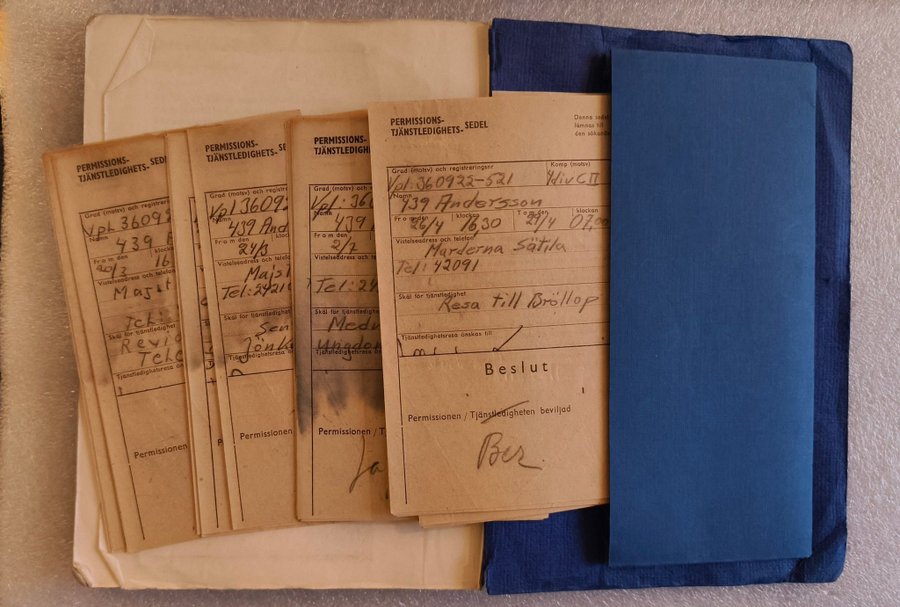 PERMISSIONS-
TJÄNSTLEDIGHETS- SED
Grad (motsv) och registrer
Vpl 3609
Namn
439
Fr o m den klock
20/3 16
Vistelseadress och telefon
Majst
Tel:
Skäl för tjänstledighet
Tele
Tjänstledighetsresa önskas
Permissionen
PERMISSIONS-
TJÄNSTLEDIGHETS- SEDEL
Grad (motsv) och registre
Vpl 36092
Namn
439 And
Fr o m den klo
24/3
Vistelseadress och telef
Majst
Tel: 2421
Skäl för tjänstledighet
Sen
Jönk
Tjänstledighetsresa önsk
Permissionen
PERMISSIONS-
TJÄNSTLEDIGH
Grad (motsv) och reg
Vpl: 36
Namn
439
Fr o m den
2/7
Vistelseadress och te
Tel: 24
Skäl för tjänstledig
Medv
Ungdom
Tjänstledighetsresa
Permissionen / T
Ja
PERMISSIONS-
TJÄNSTLEDIGHETS- SEDEL
Denna sedel
lämnas till
den sökande
Grad (motsv) och registreringsnr Komp (motsv)
Vpl: 360922-521 4div CII
Namn
439 Andersson
Fr o m den klockan T o m den klockan
26/4 16,30 29/4 07,00
Vistelseadress och telefon
Marderna Sätila
Tel: 42091
Skäl för tjänstledighet
Resa till Bröllop
Tjänstledighetsresa önskas till
Beslut
Permissionen / Tjänstledigheten beviljad
Ber.